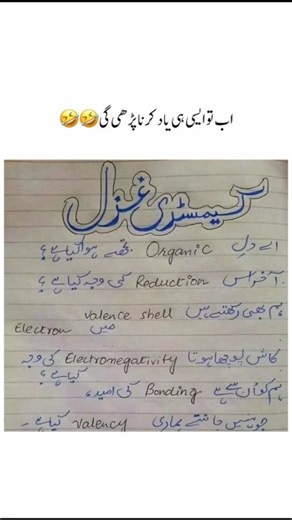 اب تو ایسی ہی یاد کرنا پڑھی گی🤣🤣
کیمسٹری غزل
اے دلِ Organic تجھے ہوا کیا ہے؟
آخر اس Reduction کی وجہ کیا ہے؟
ہم بھی رکھتے ہیں valence shell میں
Electron
کاش پوچھا ہوتا Electronegativity کی وجہ
کیا ہے؟
ہم کو اُن سے ہے Bonding کی امید،
جو نہیں جانتے ہماری Valency کیا ہے۔